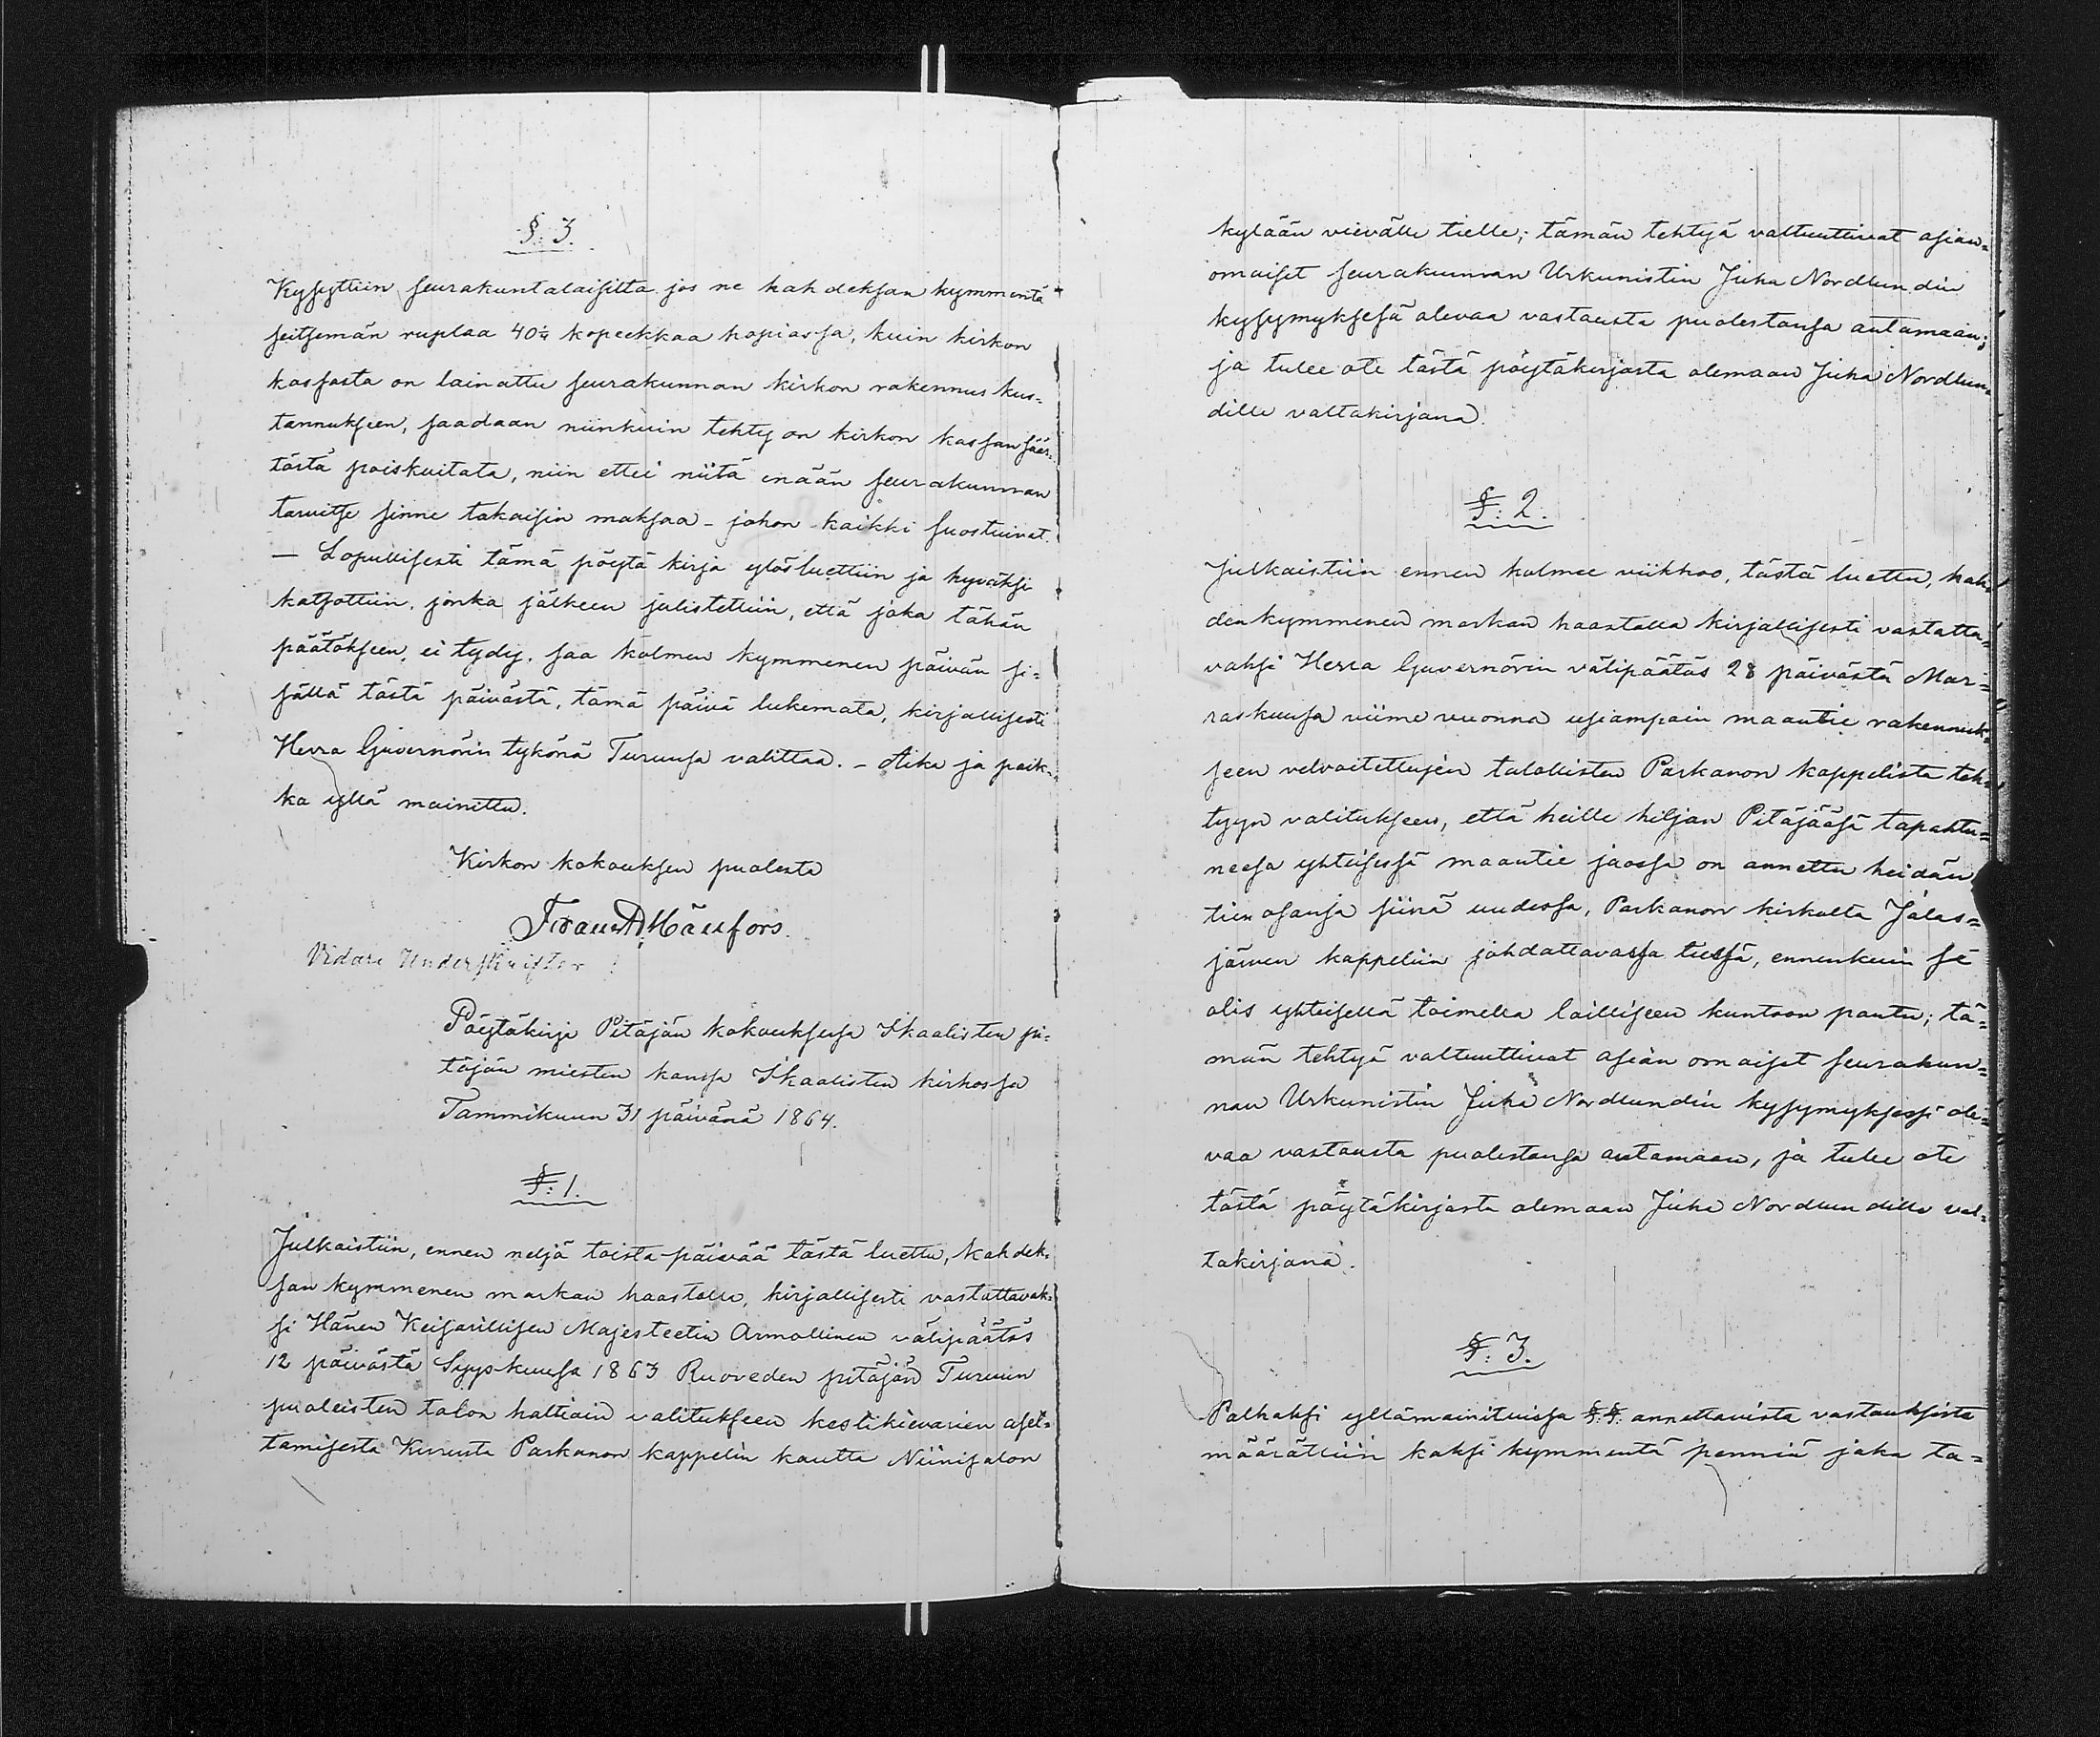 §. 3.
Kysyttiin seurakuntalaisilta jos ne kahdeksan kymmentä
seitsemän ruplaa 40¼ kopeekkaa hopiassa, kuin kirkon
kassasta on lainattu seurakunnan kirkon rakennus kus=
tannukseen, saadaan niinkuin tehty on kirkon kassan sääs=
töstä poiskuitata, niin ettei niitä enään seurakunnan
tarvitse sinne takaisin maksaa – johon kaikki suostuivat.
— Lopullisesti tämä pöytä kirja ylösluettiin ja hyväksi
katsottiin, jonka jälkeen julistettiin, että joka tähän
päätökseen ei tydy, saa kolmen kymmenen päivän si=
sällä tästä päivästä, tämä päivä lukemata, kirjallisesti
Herra Guvernörin tykönä Turussa valittaa. – Aika ja paik=
ka yllä mainittu.
Kirkon kokouksen puolesta
Frans Mäufors.
Vidare Underskrifter
Pöytäkirja Pitäjän kokouksessa Ikaalisten pi=
täjän miesten kanssa Ikaalisten kirkossa
Tammikuun 31 päivänä 1864.
§. 1.
Julkaistiin, ennen neljä toista päivää tästä luettu, kahdek=
san kymmenen markan haastolla, kirjallisesti vastattavak=
si Hänen Keisarillisen Majesteetin Armollinen välipäätös
12 päivästä Syyskuusa 1863 Ruoveden pitäjän Turuun
puoleisten talon haltiain valitukseen kestikievarien aset=
tamisesta Kurusta Parkanon kappelin kautta Niinisalon
kylään vievälle tielle; tämän tehtyä valtuuttivat asian=
omaiset seurakunnan Urkunistin Juha Nordlundin
kysymyksesä olevaa vastausta puolestansa antamaan;
ja tulee ote tästä pöytäkirjasta olemaan Juha Nordlun=
dille valtakirjana.
§. 2.
Julkaistiin ennen kolmee viikkoo, tästä luettu, kah=
denkymmenen markan haastolla kirjallisesti vastatta=
vaksi Herra Guvernörin välipäätös 28 päivästä Mar=
raskuusa viime vuonna usiampain maantie rakennuk=
seen velvoitettujen talollisten Parkanon kappelista teh=
tyyn valitukseen, että heille heljan Pitäjääsä tapahtu=
neesa yhteisessä maantie jaossa on annettu heidän
tien osansa siinä uudessa, Parkanon kirkolta Jalas=
järven kappeliin johdattavassa tiessä, ennenkuin se
olis yhteisellä toimella lailliseen kuntoon pantu; tä=
män tehtyä valtuuttivat asian omaiset seurakun=
nan Urkunistin Juha Nordlundin kysymyksessi ole=
vaa vastausta puolestansa antamaan, ja tulee ote
tästä pöytäkirjasta olemaan Juha Nordlundille val=
takirjana.
§. 3.
Palkaksi yllämainituissa §.§. annettavista vastauksista
määrättiin kaksi kymmentä penniä joka ta=